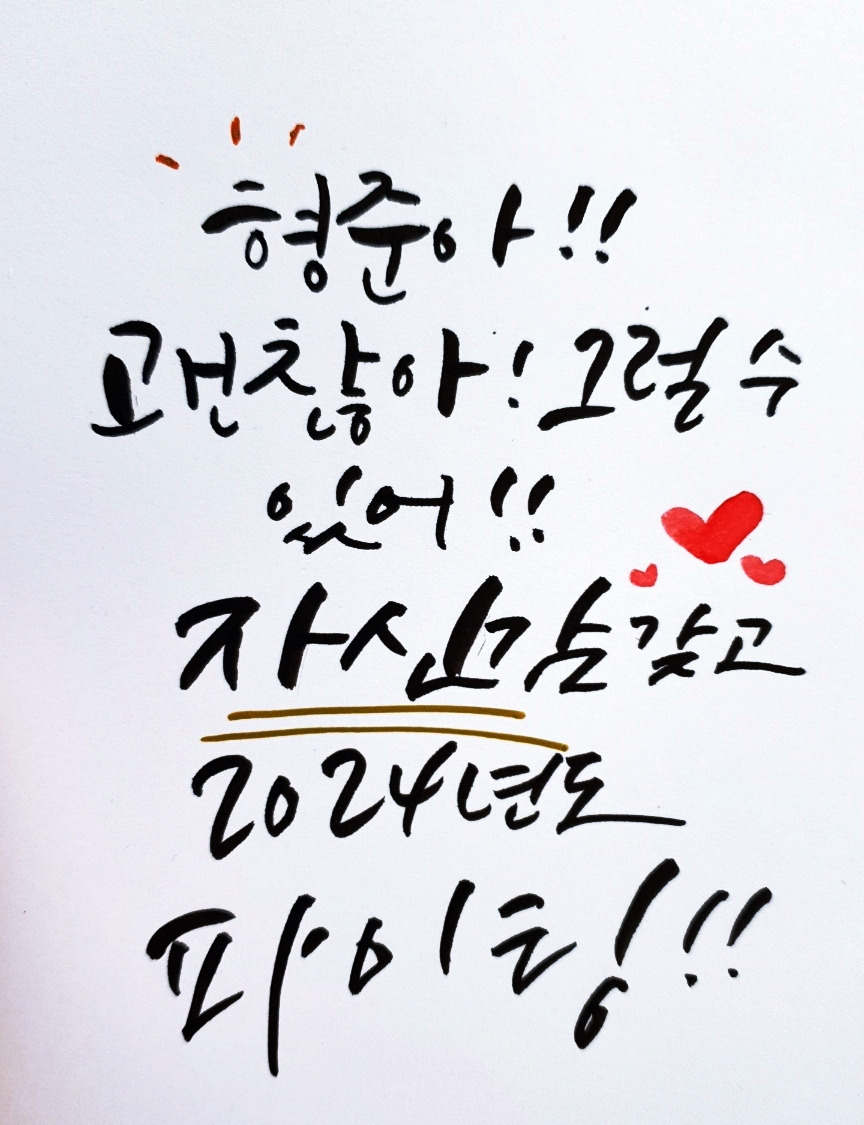 형준아!!
괜찮아! 그럴 수
있어!!
자신감 갖고
2024년도
파이팅!!